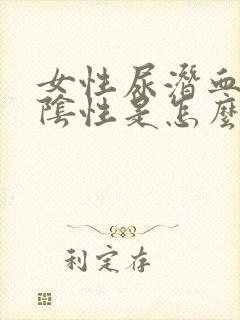 女性尿潛血
陰性是怎麼
利定存